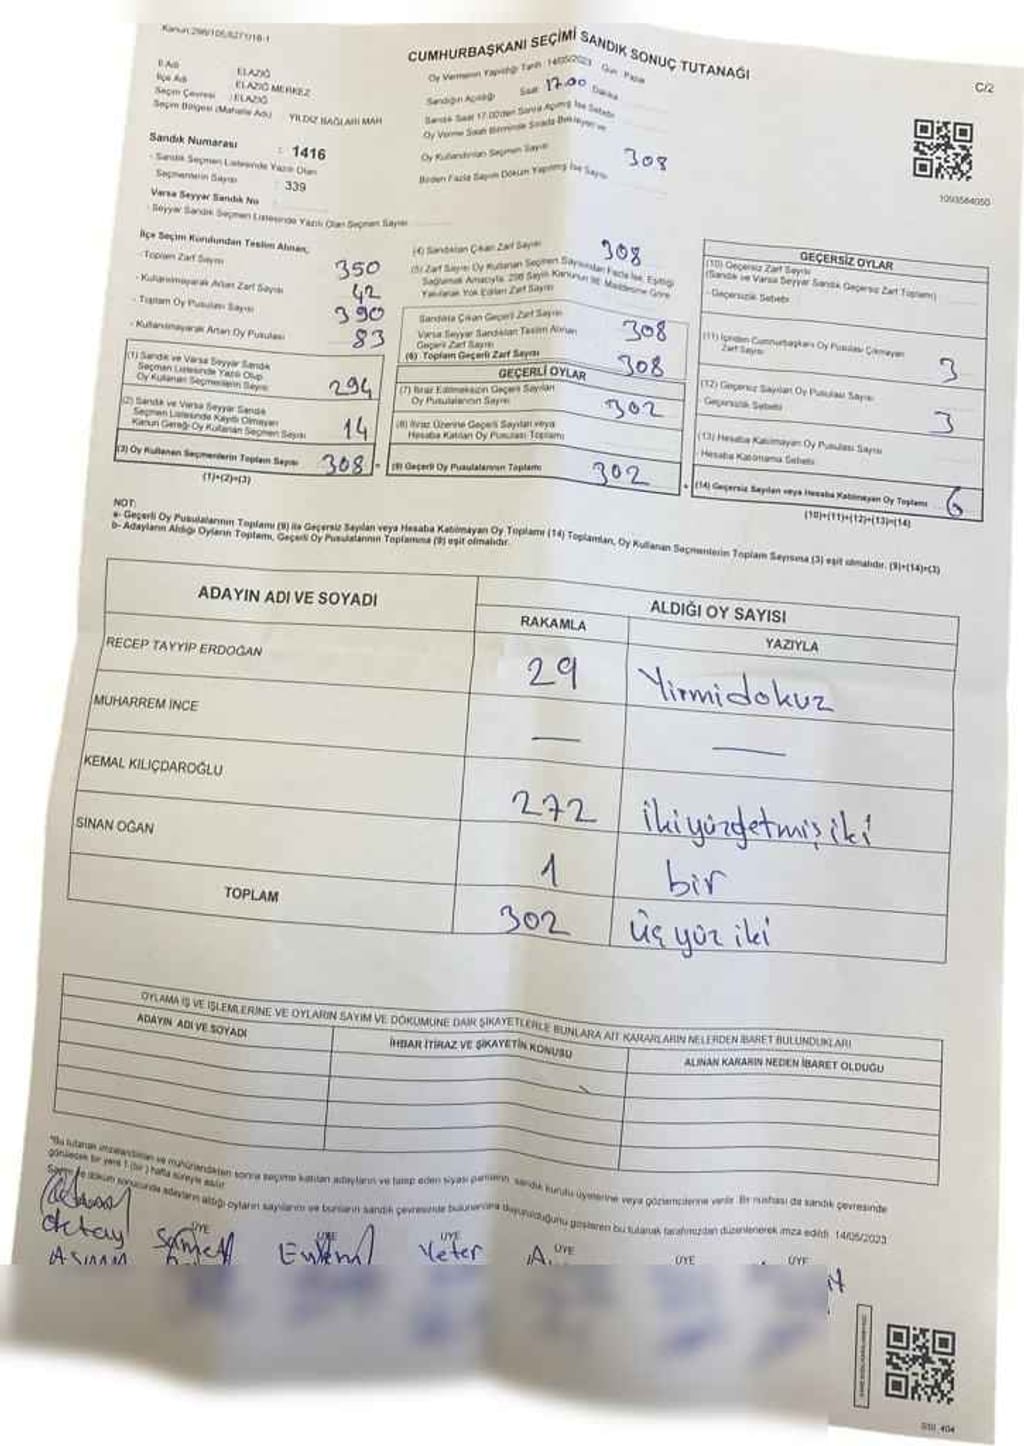 Kanun:298/105/6271/16-1
CUMHURBAŞKANI SEÇİMİ SANDIK SONUÇ TUTANAĞI
C/2
Oy Vermenin Yapıldığı Tarih : 14/05/2023 Gün : Pazar
İl Adı : ELAZIĞ
İlçe Adı : ELAZIĞ MERKEZ
Seçim Çevresi : ELAZIĞ
Seçim Bölgesi (Mahalle Adı) YILDIZ BAĞLARI MAH
Sandığın Açıldığı Saat 17.00 Dakika
Sandık Saat 17.00'den Sonra Açılmış İse Sebebi
Oy Verme Saati Bitiminde Sırada Bekleyen ve
Oy Kullandırılan Seçmen Sayısı 308
Birden Fazla Sayım Döküm Yapılmış İse Sayısı
1093564050
Sandık Numarası : 1416
- Sandık Seçmen Listesinde Yazılı Olan
Seçmenlerin Sayısı : 339
Varsa Seyyar Sandık No
- Seyyar Sandık Seçmen Listesinde Yazılı Olan Seçmen Sayısı
İlçe Seçim Kurulundan Teslim Alınan;
- Toplam Zarf Sayısı 350
- Kullanılmayarak Artan Zarf Sayısı 42
- Toplam Oy Pusulası Sayısı 390
- Kullanılmayarak Artan Oy Pusulası 83
(1) Sandık ve Varsa Seyyar Sandık
Seçmen Listesinde Yazılı Olup
Oy Kullanan Seçmenlerin Sayısı 294
(2) Sandık ve Varsa Seyyar Sandık
Seçmen Listesinde Kayıtlı Olmayan
Kanun Gereği Oy Kullanan Seçmen Sayısı 14
(3) Oy Kullanan Seçmenlerin Toplam Sayısı 308 =
(1)+(2)=(3)
(4) Sandıktan Çıkan Zarf Sayısı 308
(5) Zarf Sayısı Oy Kullanan Seçmen Sayısından Fazla İse, Eşitliği
Sağlamak Amacıyla, 298 Sayılı Kanunun 98. Maddesine Göre
Yakılarak Yok Edilen Zarf Sayısı
Sandıkta Çıkan Geçerli Zarf Sayısı 308
Varsa Seyyar Sandıktan Teslim Alınan
Geçerli Zarf Sayısı
(6) Toplam Geçerli Zarf Sayısı 308
GEÇERLİ OYLAR
(7) İtiraz Edilmeksizin Geçerli Sayılan
Oy Pusulalarının Sayısı 302
(8) İtiraz Üzerine Geçerli Sayılan veya
Hesaba Katılan Oy Pusulası Toplamı
(9) Geçerli Oy Pusulalarının Toplamı 302 +
GEÇERSİZ OYLAR
(10) Geçersiz Zarf Sayısı
(Sandık ve Varsa Seyyar Sandık Geçersiz Zarf Toplamı)
- Geçersizlik Sebebi
(11) İçinden Cumhurbaşkanı Oy Pusulası Çıkmayan
Zarf Sayısı 3
(12) Geçersiz Sayılan Oy Pusulası Sayısı
- Geçersizlik Sebebi 3
(13) Hesaba Katılmayan Oy Pusulası Sayısı
- Hesaba Katılmama Sebebi
(14) Geçersiz Sayılan veya Hesaba Katılmayan Oy Toplamı 6
(10)+(11)+(12)+(13)=(14)
NOT:
a- Geçerli Oy Pusulalarının Toplamı (9) ile Geçersiz Sayılan veya Hesaba Katılmayan Oy Toplamı (14) Toplamları, Oy Kullanan Seçmenlerin Toplam Sayısına (3) eşit olmalıdır. (9)+(14)=(3)
b- Adayların Aldığı Oyların Toplamı, Geçerli Oy Pusulalarının Toplamına (9) eşit olmalıdır.
ADAYIN ADI VE SOYADI
ALDIĞI OY SAYISI
RAKAMLA YAZIYLA
RECEP TAYYİP ERDOĞAN 29 Yirmidokuz
MUHARREM İNCE — —
KEMAL KILIÇDAROĞLU 272 ikiyüzyetmişiki
SİNAN OĞAN 1 bir
TOPLAM 302 üçyüziki
OYLAMA İŞ VE İŞLEMLERİNE VE OYLARIN SAYIM VE DÖKÜMÜNE DAİR ŞİKAYETLERLE BUNLARA AİT KARARLARIN NELERDEN İBARET BULUNDUKLARI
ADAYIN ADI VE SOYADI
İHBAR İTİRAZ VE ŞİKAYETİN KONUSU
ALINAN KARARIN NEDEN İBARET OLDUĞU
*Bu tutanak imzalandıktan ve mühürlendikten sonra seçime katılan adayların ve talep eden siyasi partilerin, sandık kurulu üyelerine veya gözlemcilerine verilir. Bir nüshası da sandık çevresinde
görülecek bir yere 1 (bir) hafta süreyle asılır.
Sayım ve döküm sonucunda adayların aldığı oyların sayılarını ve bunların sandık çevresinde bulunanlara duyurulduğunu gösteren bu tutanak tarafımızdan düzenlenerek imza edildi. 14/05/2023
ÜYE ÜYE ÜYE ÜYE ÜYE ÜYE
Oktay Samet Evrem Yeter A.